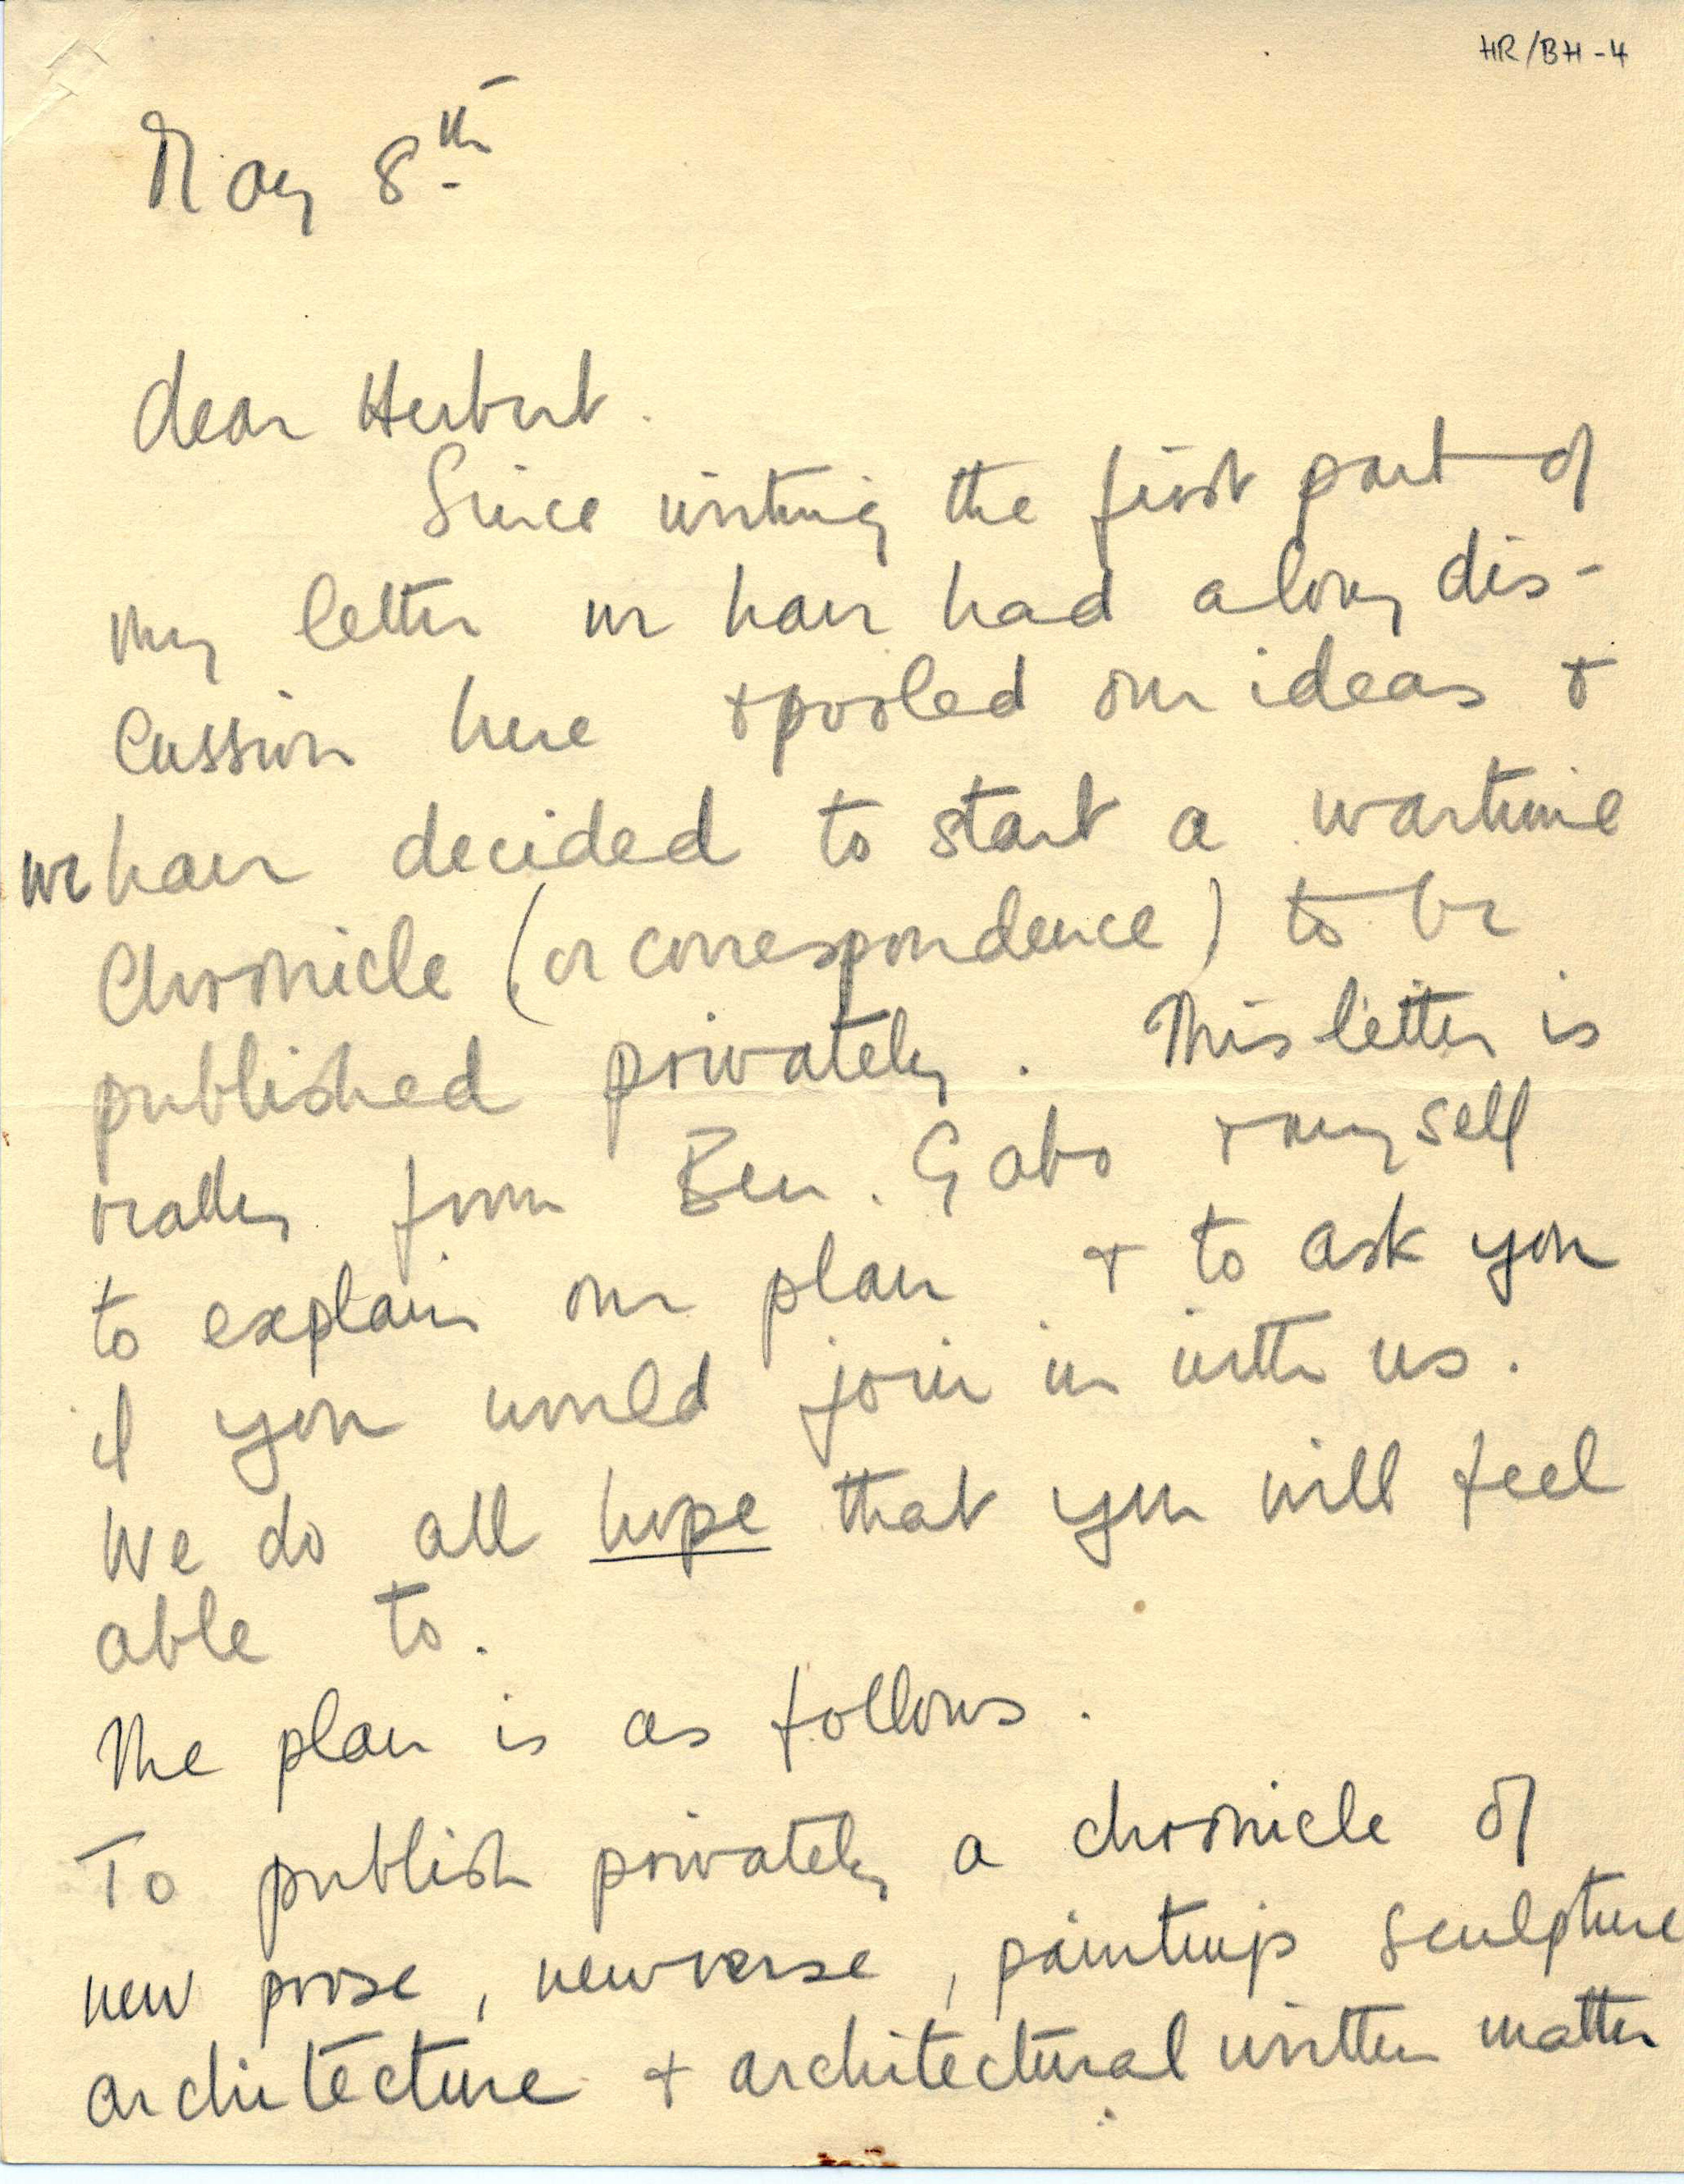 HR/BH-4
May 8th
dear Herbert.
Since writing the first part of
my letter we have had a long dis-
cussion here + pooled our ideas +
we have decided to start a wartime
Chronicle (or correspondence) to be
published privately. This letter is
really from Ben. Gabo + myself
to explain our plan + to ask you
if you would join in with us.
We do all hope that you will feel
able to.
The plan is as follows.
To publish privately a chronicle of
new prose, new verse, paintings sculpture
architecture + architectural written matter